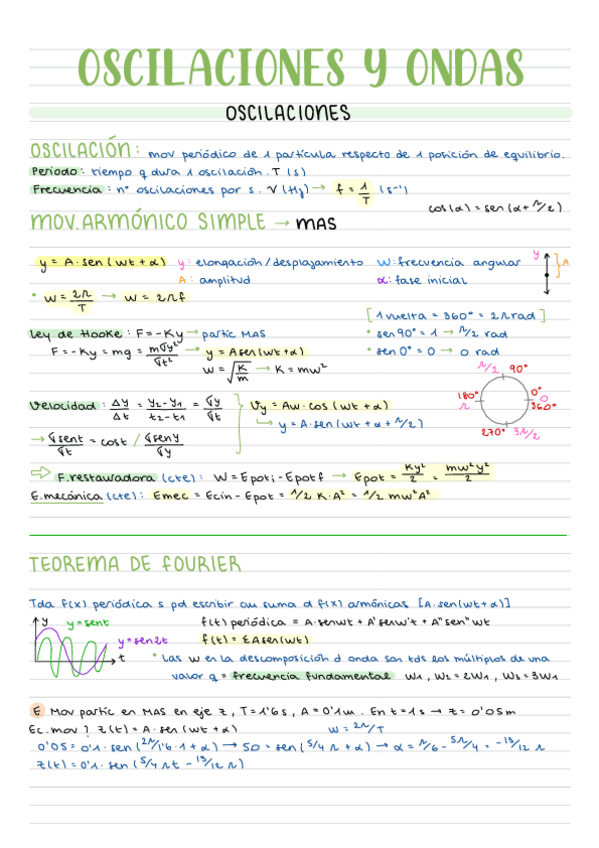 OSCILACIONES Y ONDAS
OSCILACIONES
OSCILACIÓN: mov periódico de 1 partícula respecto de 1 posición de equilibrio.
Periodo: tiempo q dura 1 oscilación. T (s)
Frecuencia: nº oscilaciones por s. V (Hz) → f = 1/T (s⁻¹)
cos(α) = sen(α + π/2)
MOV. ARMÓNICO SIMPLE → MAS
y = A · sen (wt + α) y: elongación/desplazamiento W: frecuencia angular
A: amplitud α: fase inicial
y
A
• w = 2π/T → w = 2πf
[1 vuelta = 360° = 2π rad]
Ley de Hooke: F = -Ky → partíc MAS • sen 90° = 1 → π/2 rad
F = -Ky = mg = m σy²/σt² → y = A sen (wt + α) • sen 0° = 0 → 0 rad
w = √K/m → K = mw²
π/2 90°
180° π
0° 0
360°
270° 3π/2
Velocidad: Δy/Δt = y₂-y₁/t₂-t₁ = σy/σt Vy = Aw · cos (wt + α)
↳ y = A · sen (wt + α + π/2)
→ σsent/σt = cost / σseny/σy
⇒ F. restauradora (cte): W = Epoti - Epotf → Epot = Ky²/2 = mw²y²/2
E. mecánica (cte): Emec = Ecin - Epot = 1/2 K·A² = 1/2 mw²A²
TEOREMA DE FOURIER
Tda f(x) periódica s pd escribir cm suma d f(x) armónicas [A·sen(wt+α)]
y y = sent f(t) periódica = A·senwt + A'senw't + A''sen''wt
y = sen2t f(t) = ΣAsen(wt)
t
• Las w en la descomposición d onda son tds los múltiplos de una
valor q = frecuencia fundamental W₁, W₂ = 2W₁, W₃ = 3W₁
E Mov partíc en MAS en eje z, T = 1'6s, A = 0'1m. En t = 1s → z = 0'05m
Ec. mov? z(t) = A · sen (wt + α) w = 2π/T
0'05 = 0'1 · sen (2π/1'6 · 1 + α) → 50 = sen (5/4 π + α) → α = π/6 - 5π/4 = -13/12 π
z(t) = 0'1 · sen (5/4 πt - 13/12 π)